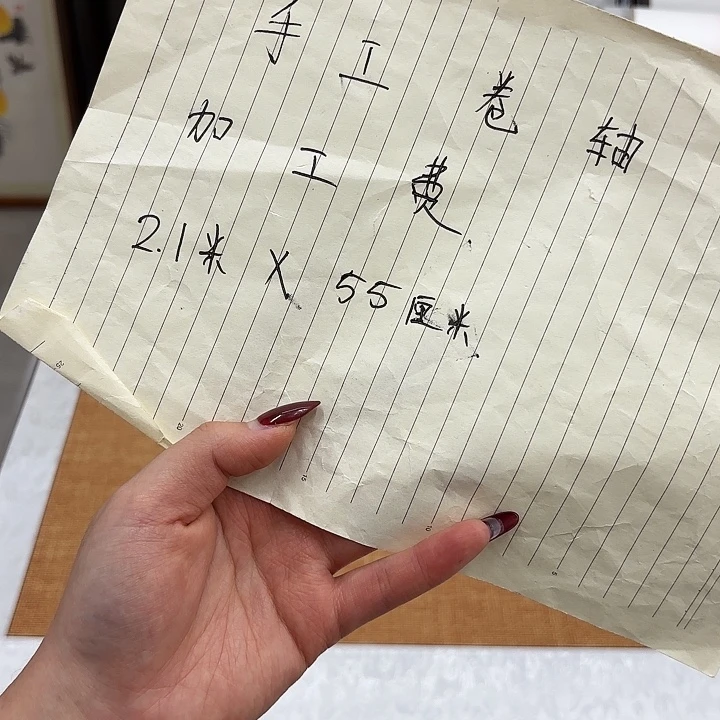 手工卷轴
加工费.
2.1米 X 55厘米.
25
20
15
10
5